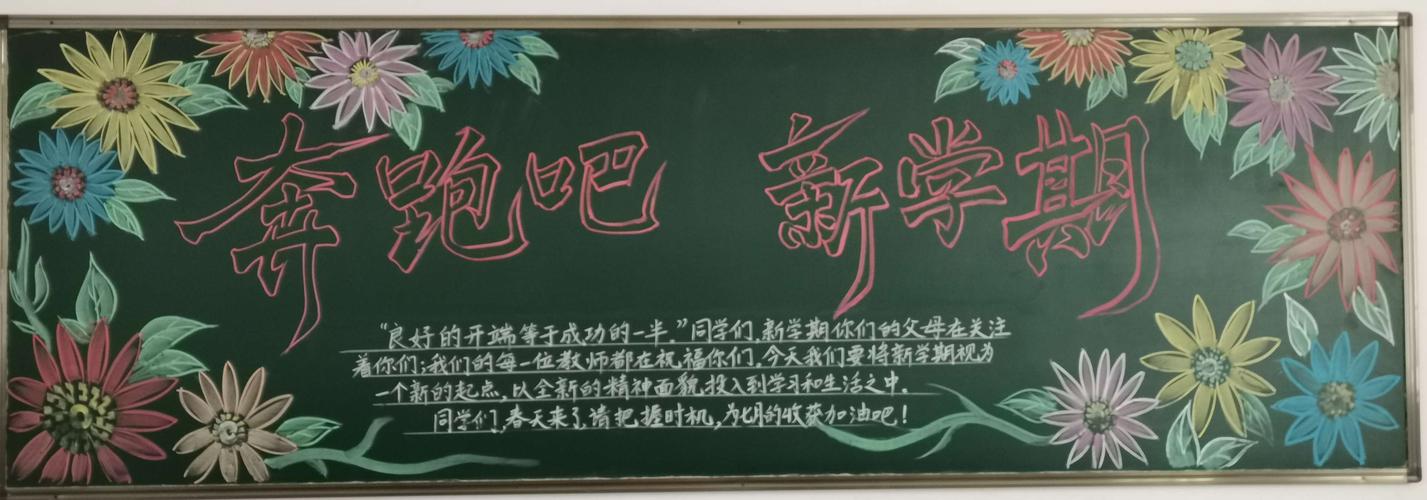 奔跑吧 新学期
“良好的开端等于成功的一半。”同学们，新学期你们的父母在关注
着你们；我们的每一位教师都在祝福你们。今天我们要将新学期视为
一个新的起点，以全新的精神面貌，投入到学习和生活之中。
同学们，春天来了，请把握时机，为七月的收获加油吧！